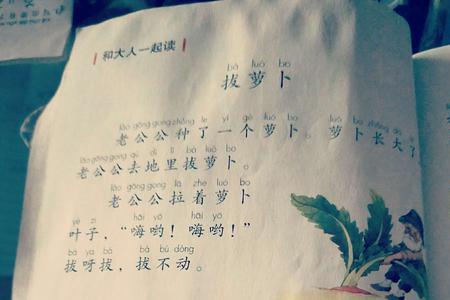 和大人一起读
bá luó bo
拔萝卜
lǎo gōng gong zhòng le yí gè luó bo luó bo zhǎng dà le
老公公种了一个萝卜。萝卜长大了
lǎo gōng gong qù dì lǐ bá luó bo
老公公去地里拔萝卜。
lǎo gōng gong lā zhe luó bo
老公公拉着萝卜
yè zi hāi yō hāi yō
叶子，“嗨哟！嗨哟！”
bá ya bá bá bú dòng
拔呀拔，拔不动。